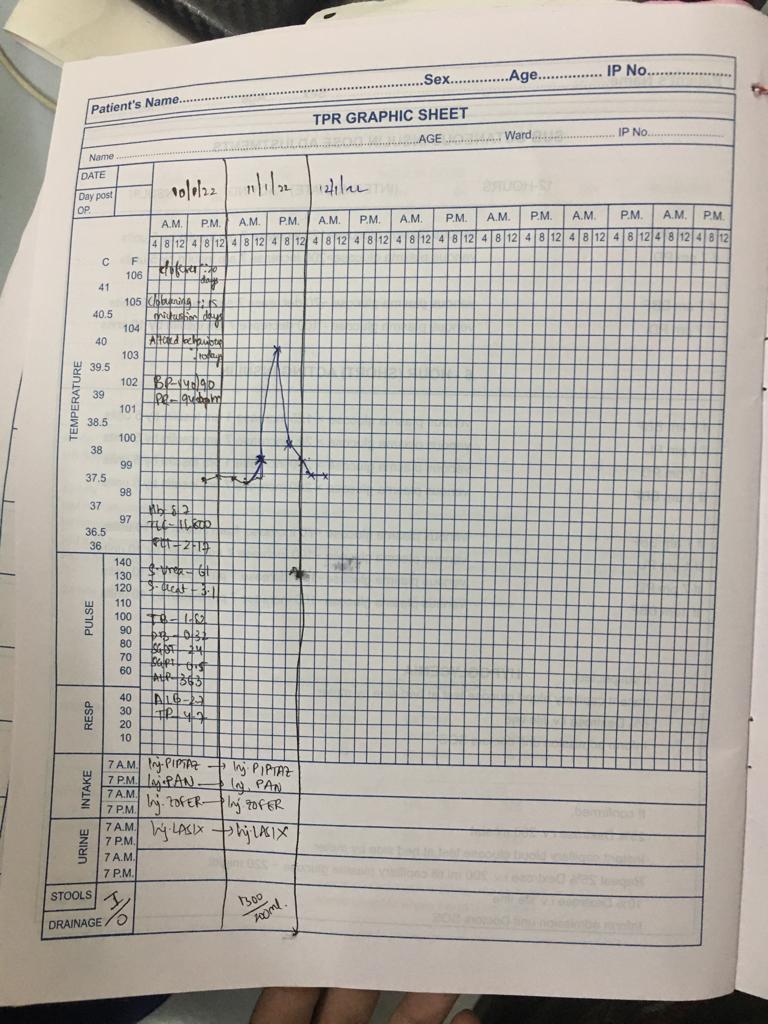 Patient's Name.......................................................Sex..............Age............... IP No....................
TPR GRAPHIC SHEET
Name ........................ AGE ................ Ward........................ IP No....................
DATE
Day post
OP.
10/1/22 11/1/22 12/1/22
A.M. P.M. A.M. P.M. A.M. P.M. A.M. P.M. A.M. P.M. A.M. P.M. A.M. P.M.
4 8 12 4 8 12 4 8 12 4 8 12 4 8 12 4 8 12 4 8 12 4 8 12 4 8 12 4 8 12 4 8 12 4 8 12 4 8 12 4 8 12
TEMPERATURE
C F
106
c/o fever :20
days
41
105 c/o burning :15
40.5 micturition days
104
40 Altered behaviour
103 : 10days
39.5
102 BP-140/90
39 PR-94bpm
101
38.5
100
38
99
37.5
98
37 Hb 8.2
97 TLC-11,800
36.5
36 PLT-2.17
PULSE
140
130 S-Urea-61
120 S-creat-3.1
110
100 TB-1.82
90 DB-0.32
80 SGOT-24
70 SGPT
60 ALP-363
RESP
40 ALB-2.7
30 TP-4.7
20
10
INTAKE
7 A.M. Inj.PIPTAZ → Inj.PIPTAZ
7 P.M. Inj.PAN → Inj.PAN
7 A.M.
7 P.M. Inj.ZOFER → Inj ZOFER
URINE
7 A.M. Inj.LASIX → Inj LASIX
7 P.M.
7 A.M.
7 P.M.
STOOLS
DRAINAGE
I/O 1300/200ml.